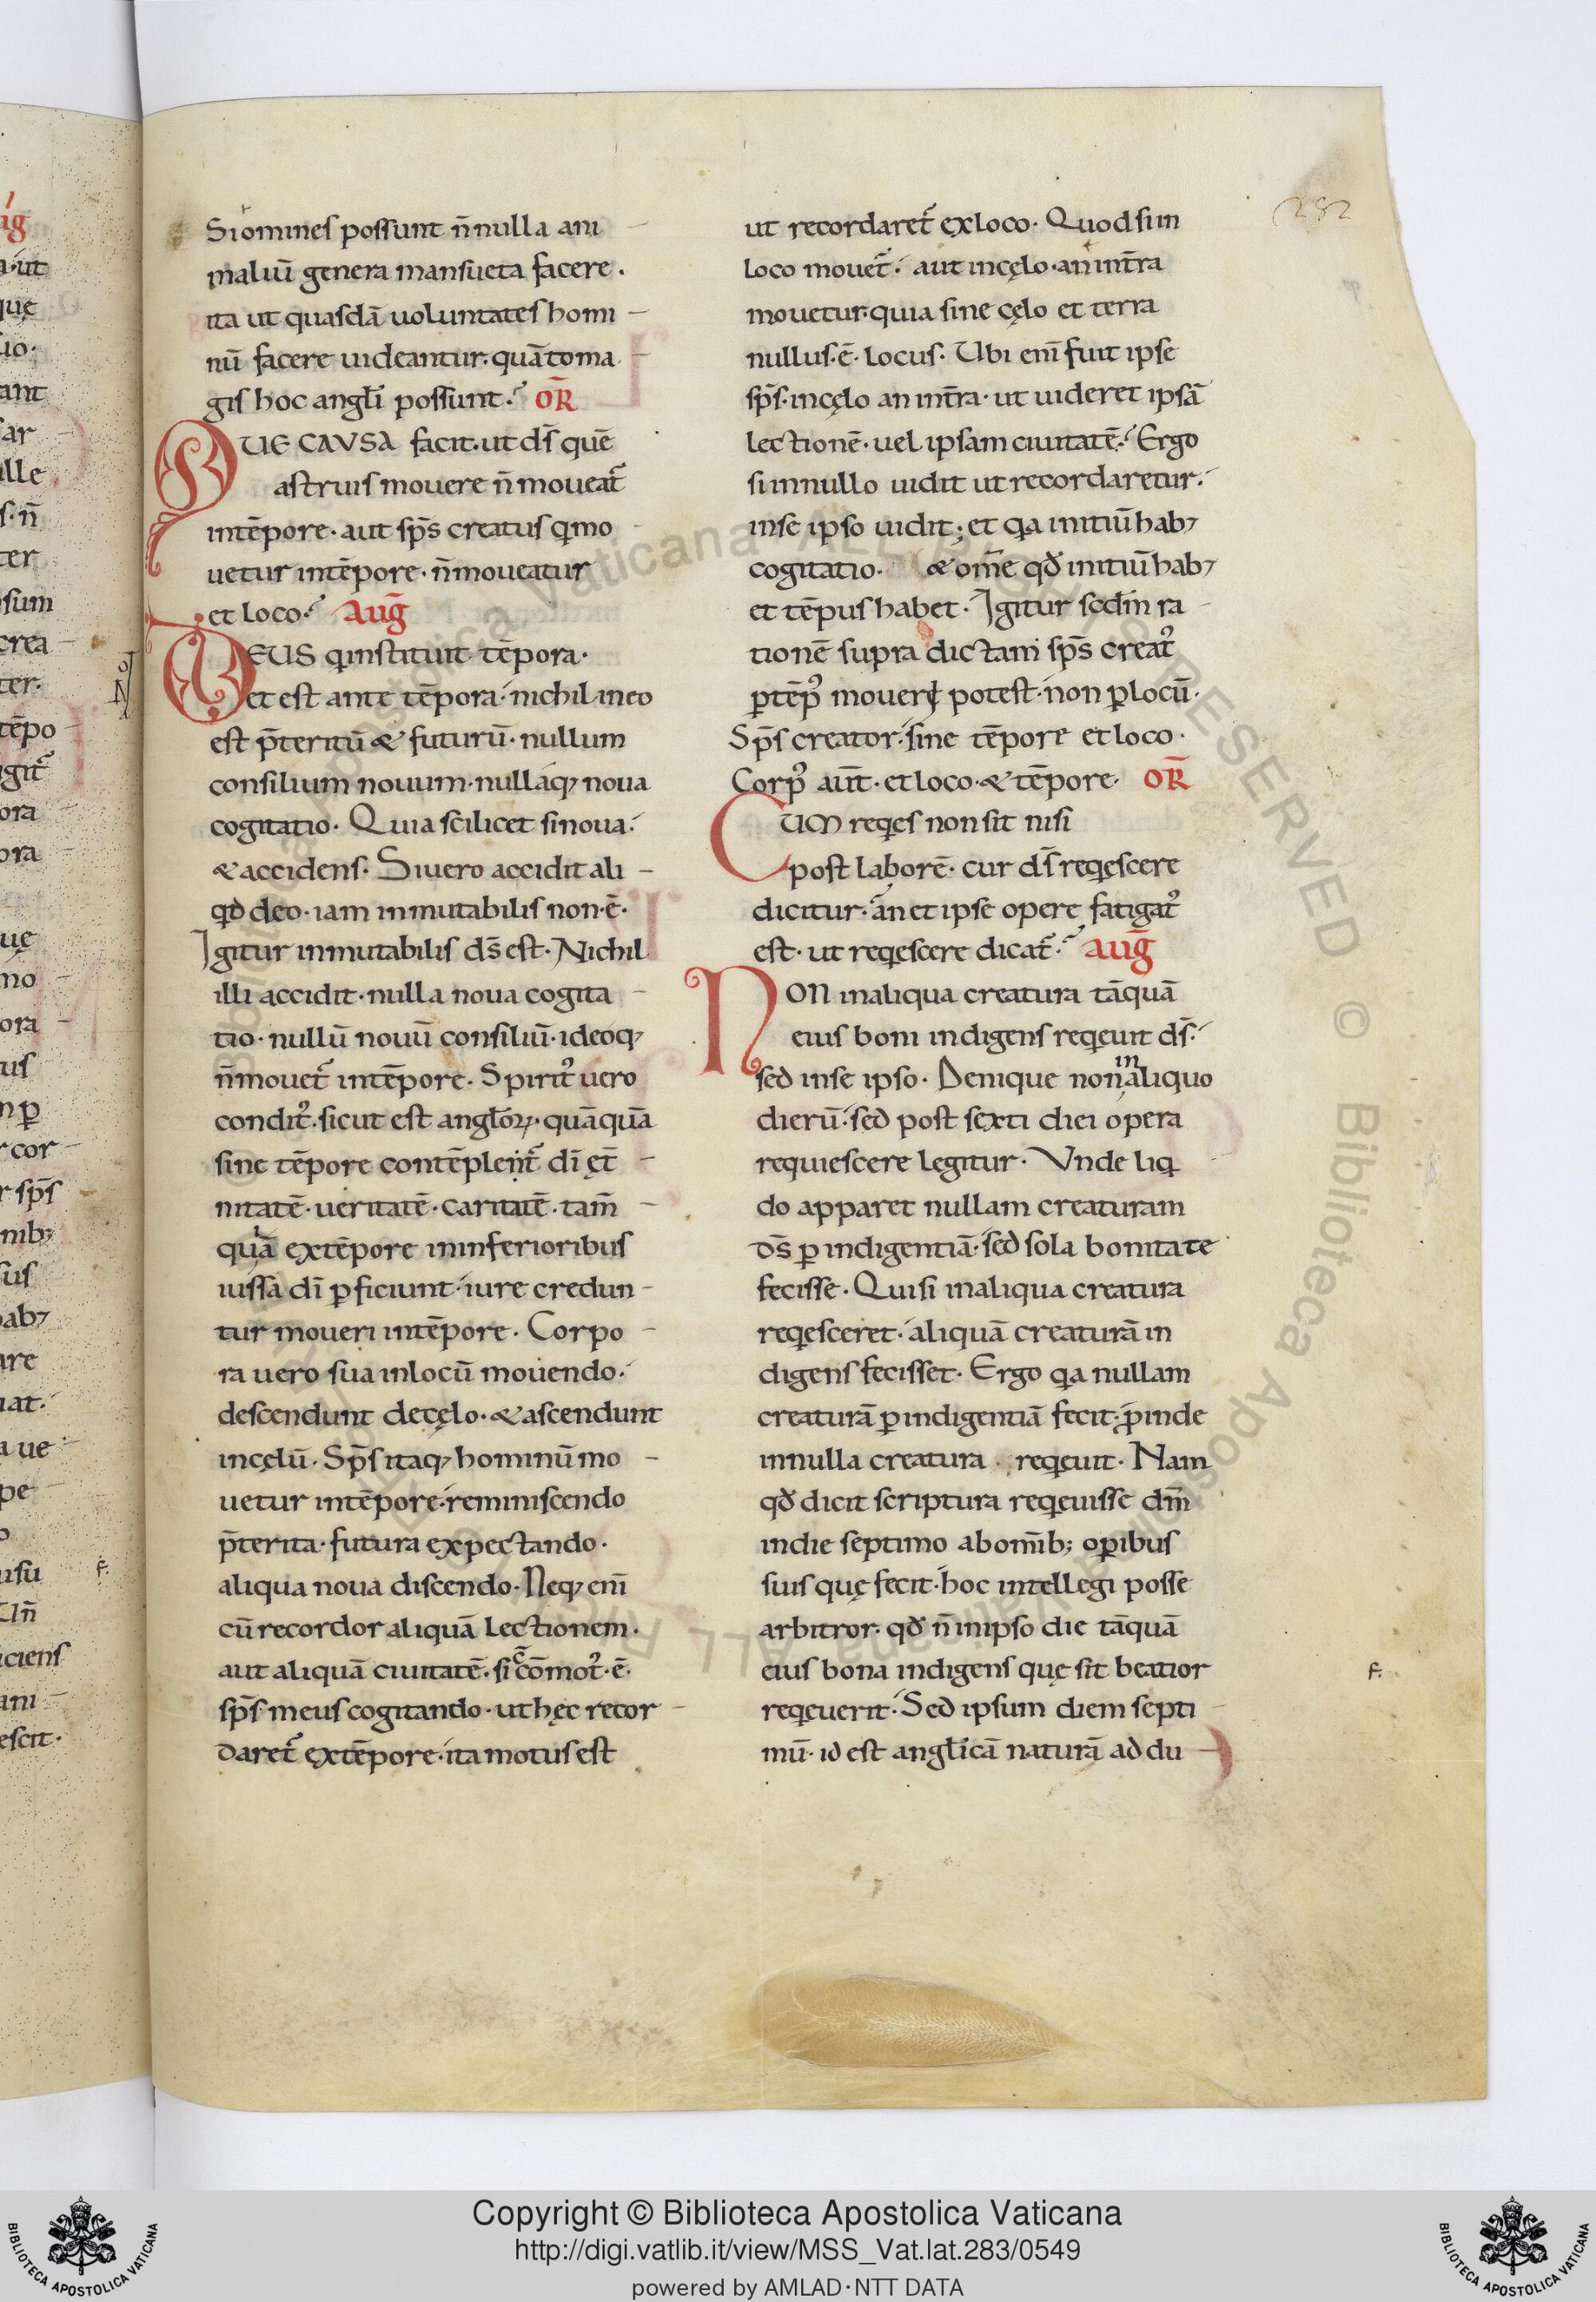 282
Si omines possunt n̄ nulla ani
maliū genera mansueta facere.
ita ut quasdā uoluntates homi
nū facere uideantur. quāto ma
gis hoc angl̄i possunt? OR̄
QUE CAVSA facit. ut ds̄ quē
astruis mouere n̄ moueat̄
in tēpore. aut sps̄ creatus q mo
uetur in tēpore. n̄ moueatur
et loco? AUḠ
DEUS q instituit tēpora.
et est ante tēpora. nichil in eo
est p̄teritū & futurū. nullum
consilium nouum. nullaq; noua
cogitatio. Quia scilicet si noua.
& accidens. Si uero accidit ali
qd deo. iam inmutabilis non.ē.
Igitur inmutabilis ds̄ est. Nichil
illi accidit. nulla noua cogita
tio. nullū nouū consiliū. ideoq;
n̄ mouet̄ in tēpore. Spirit᾽ uero
condit᾽. sicut est angl̄oꝝ. quāquā
sine tēpore contēplent̄ dī ęt̄
nitatē. ueritatē. caritatē. tam̄
quia ex tēpore in inferioribus
iussa dī ꝑficiunt. iure credun
tur moueri in tēpore. Corpo
ra uero sua in locū mouendo.
descendunt de cęlo. & ascendunt
in cęlū. Sps̄ itaq; hominū mo
uetur in tēpore. reminiscendo
p̄terita. futura expectando.
aliqua noua discendo. Neq; enī
cū recordor aliquā Lectionem.
aut aliquā ciuitatē. sic cōmot᾽.ē.
sps̄ meus cogitando. ut hęc recor
daret̄ ex tēpore. ita motus est
ut recordaret̄ ex loco. Quod si in
loco mouet̄. aut in cęlo. an in tr̄a
mouetur. quia sine cęlo et terra
nullus.ē. locus. Ubi enī fuit ipse
sps̄. in cęlo an in tr̄a. ut uideret ipsā
lectionē. uel ipsam ciuitatē? Ergo
si in nullo uidit ut recordaretur.
in se ipso uidit; et qa initiū hab;
cogitatio. & om̄e qd̄ initiū hab;
et tēpus habet. Igitur scdm̄ ra
tionē supra dictam sps̄ creat᾽
ꝑ tēp᾽ moueri potest. non ꝑ locū.
Sps̄ creator. sine tēpore et loco.
Corp᾽ aut̄. et loco. & tēpore. OR̄
CUM reqes non sit nisi
post laborē. cur ds̄ reqescere
dicitur. an et ipse opere fatigat᾽
est. ut reqescere dicat̄? AUḠ
NON in aliqua creatura tāquā
eius boni indigens reqeuit ds̄.
sed in se ipso. Denique non in aliquo
dierū. sed post sexti diei opera
requiescere legitur. Vnde liq
do apparet nullam creaturam
ds̄ ꝑ indigentiā. sed sola bonitate
fecisse. Qui si in aliqua creatura
reqesceret. aliquā creaturā in
digens fecisset. Ergo qa nullam
creaturā ꝑ indigentiā fecit. ꝓinde
in nulla creatura reqeuit. Nam
qd̄ dicit scriptura reqeuisse dm̄
in die septimo ab om̄ib; oꝑibus
suis quę fecit. hoc intellegi posse
arbitror. qd̄ n̄ in ipso die tāquā
eius bona indigens quę sit beatior
reqeuerit. Sed ipsum diem septi
mū. id est angl̄icā naturā ad du
F.
Copyright © Biblioteca Apostolica Vaticana
http://digi.vatlib.it/view/MSS_Vat.lat.283/0549
powered by AMLAD·NTT DATA
BIBLIOTECA APOSTOLICA VATICANA
BIBLIOTECA APOSTOLICA VATICANA